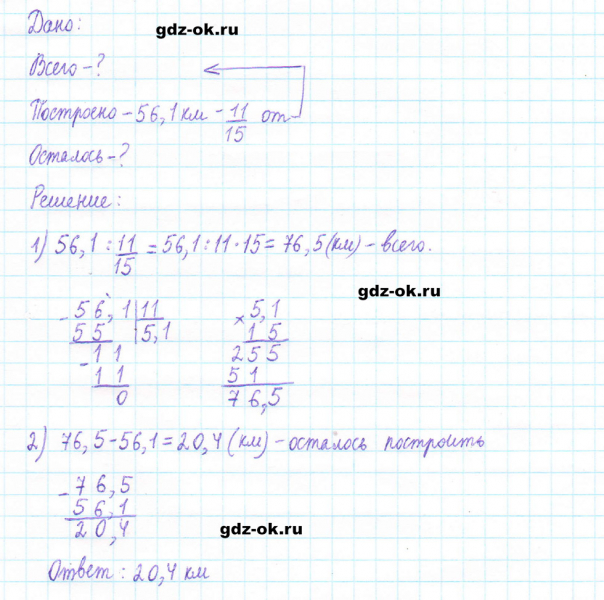 Дано:
gdz-ok.ru
Всего-?
Построено-56,1км-11/15 от
Осталось-?
Решение:
1) 56,1:11/15=56,1:11·15=76,5(км)-всего.
gdz-ok.ru
-56,1|11 ×5,1
55 |5,1 15
-11 255
11 51
0 76,5
2) 76,5-56,1=20,4(км)-осталось построить
-76,5
56,1
20,4
gdz-ok.ru
Ответ: 20,4 км